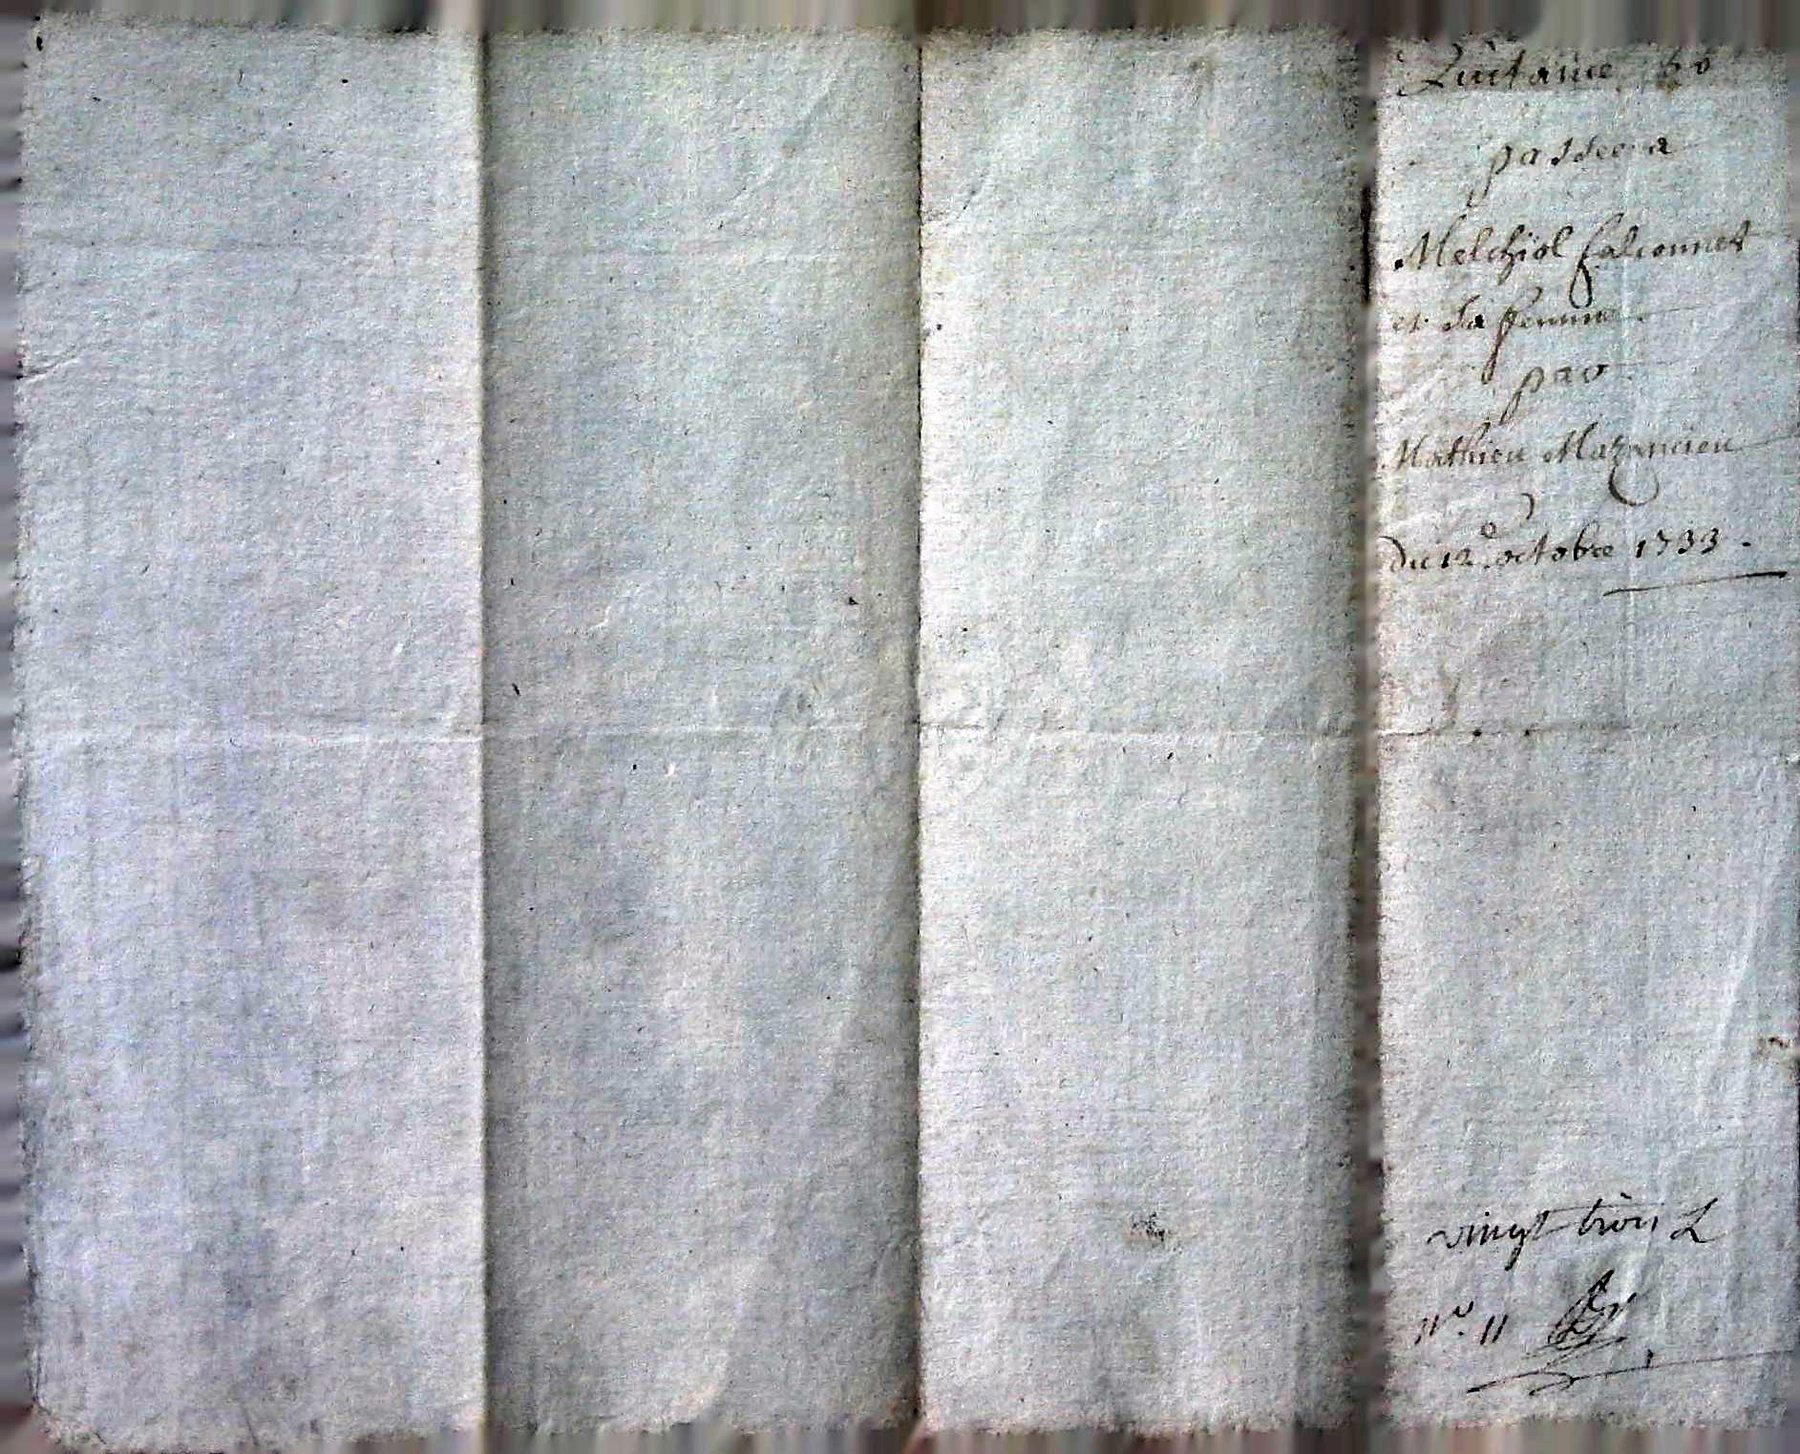 Quitance
passee a
Melchiol falconnet
et sa femme
par
Mathieu Mazancieu
du 12e octobre 1733.
vingt trois L
No. 11